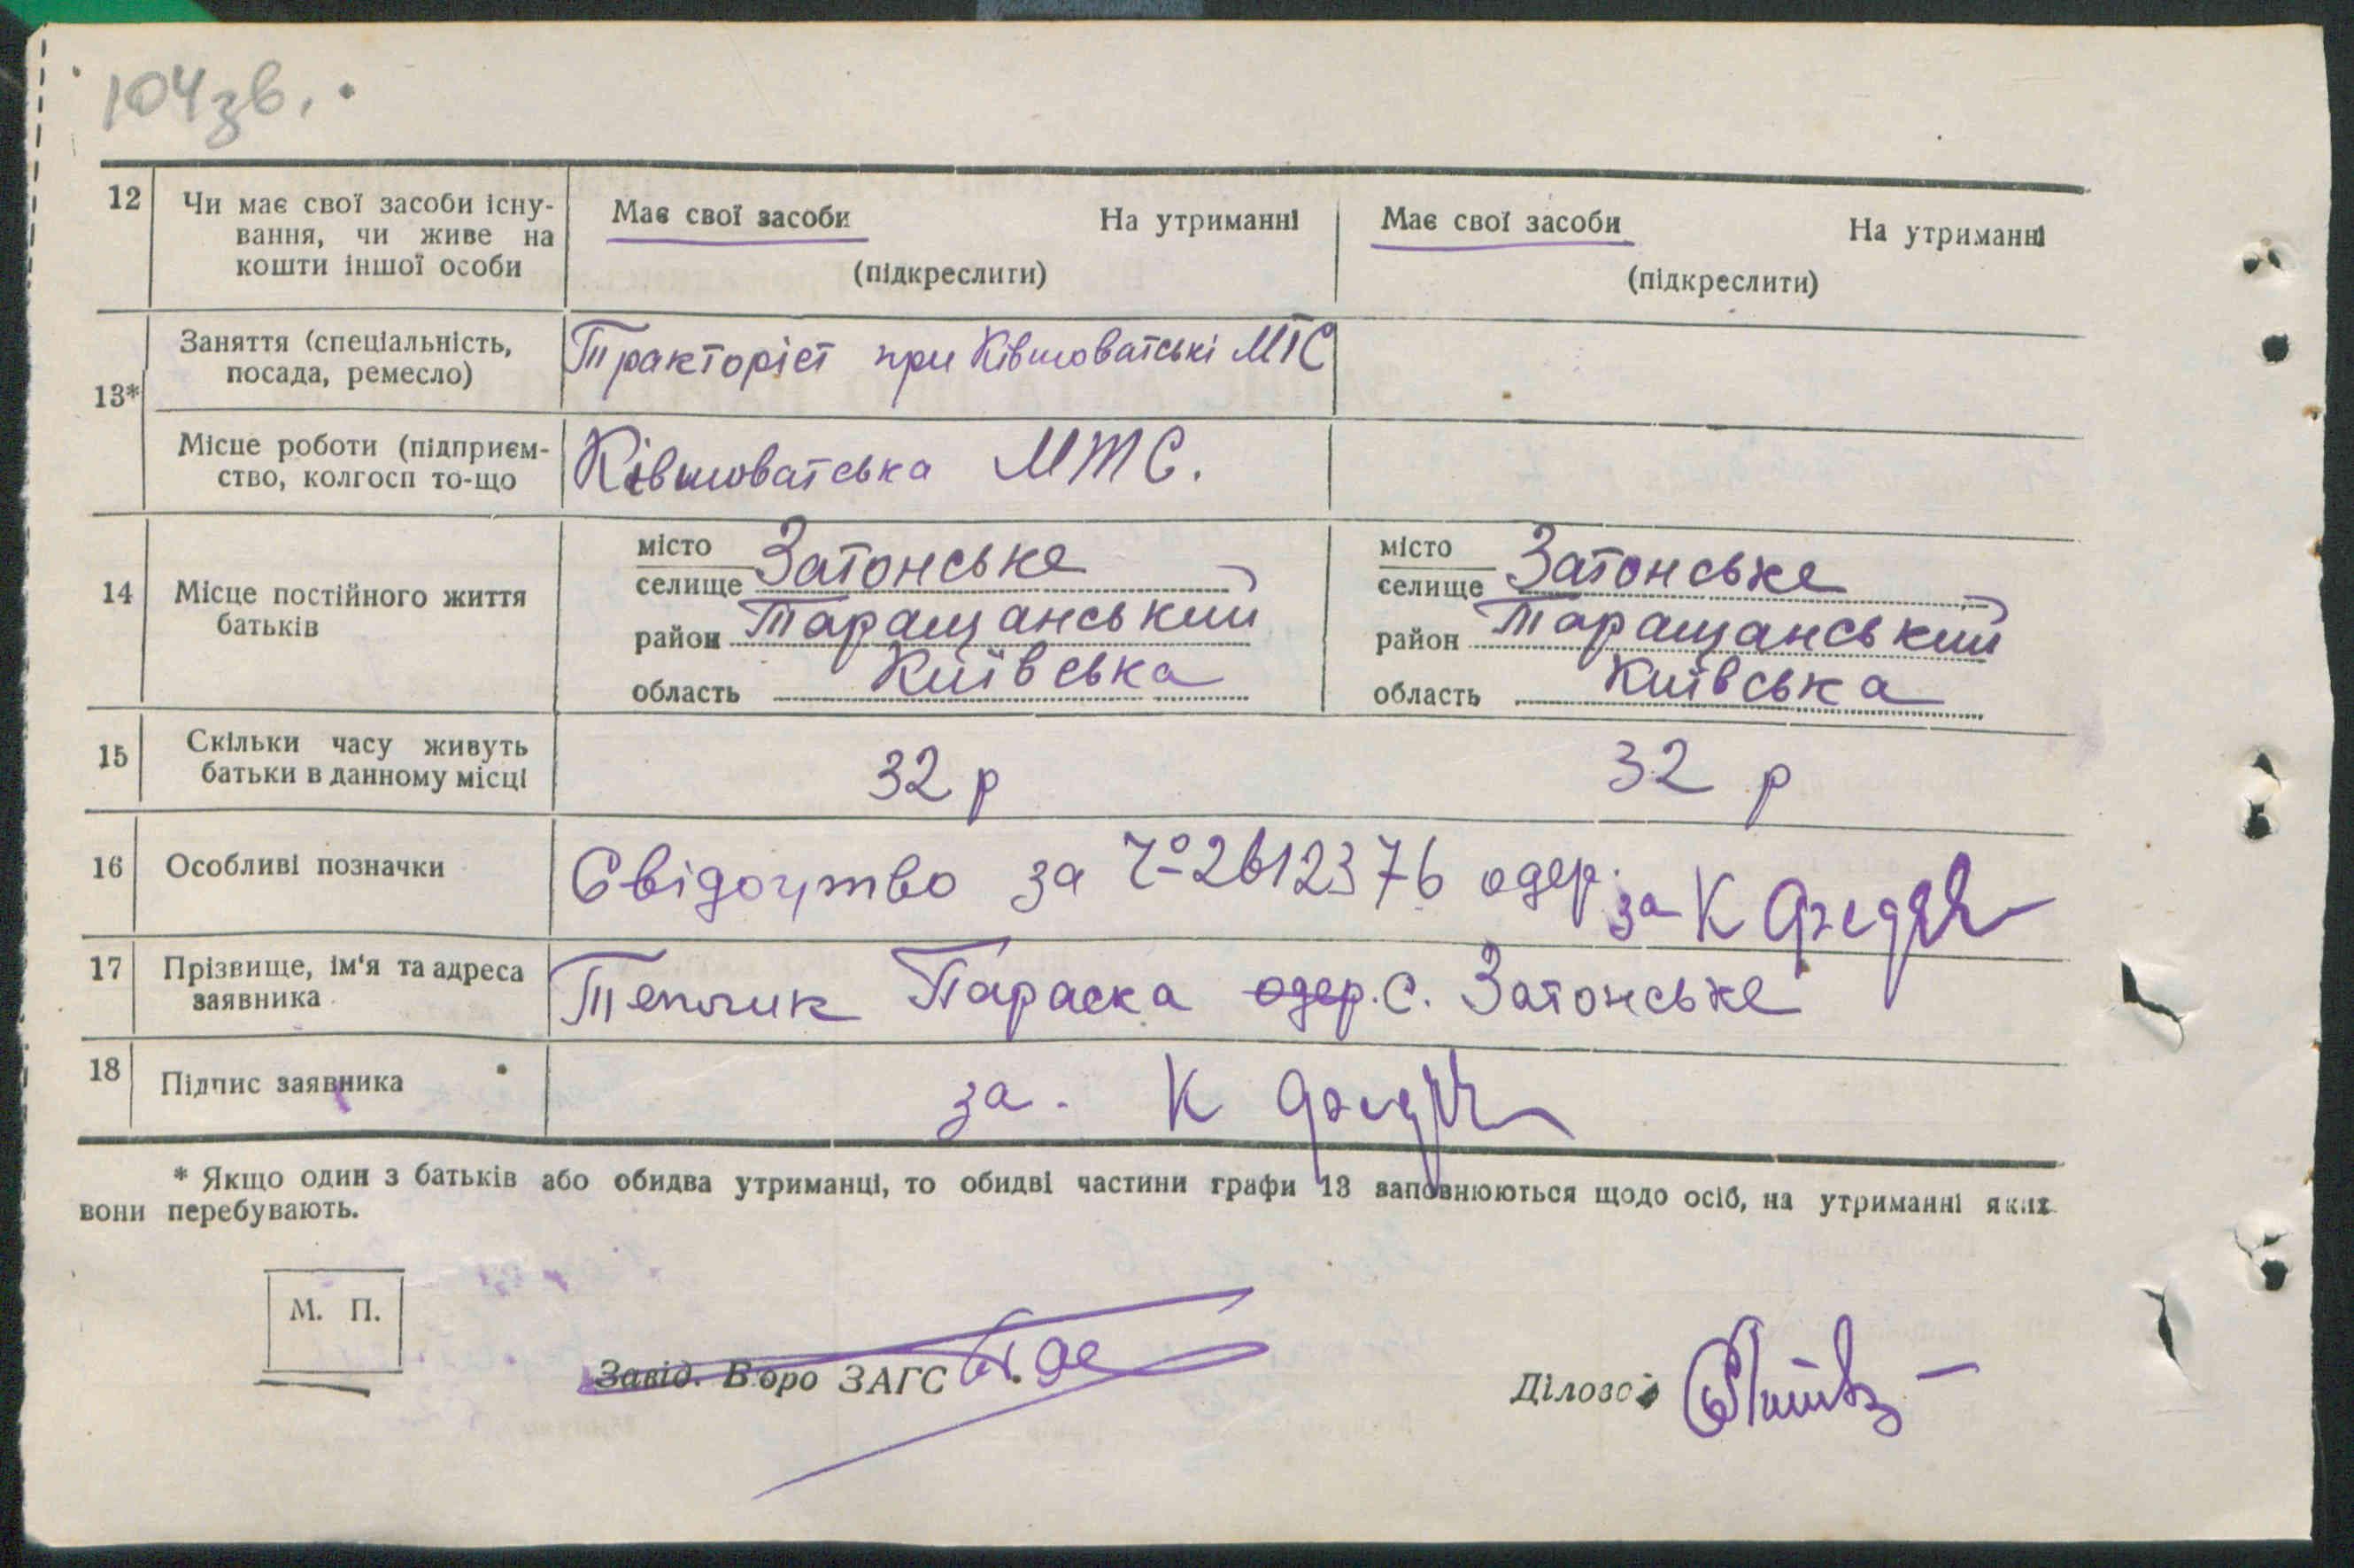 104зв.
12 Чи має свої засоби існу-
вання, чи живе на
кошти іншої особи
Має свої засоби На утриманні
(підкреслити)
Має свої засоби На утриманні
(підкреслити)
13*
Заняття (спеціальність,
посада, ремесло)
Тракторіст при Ківшоватські МТС
Місце роботи (підприєм-
ство, колгосп то-що
Ківшоватська МТС.
14 Місце постійного життя
батьків
місто
селище Затонське
район Таращанський
область Київська
місто
селище Затонське
район Таращанський
область Київська
15 Скільки часу живуть
батьки в данному місці
32 р
32 р
16 Особливі позначки
Свідоцтво за Чо 2612376 одер. за К
17 Прізвище, ім'я та адреса
заявника
Параска одер. с. Затонське
18 Підпис заявника
за. К
* Якщо один з батьків або обидва утриманці, то обидві частини графи 13 заповнюються щодо осіб, на утриманні яких
вони перебувають.
М. П.
Завід. Бюро ЗАГС
Діловод